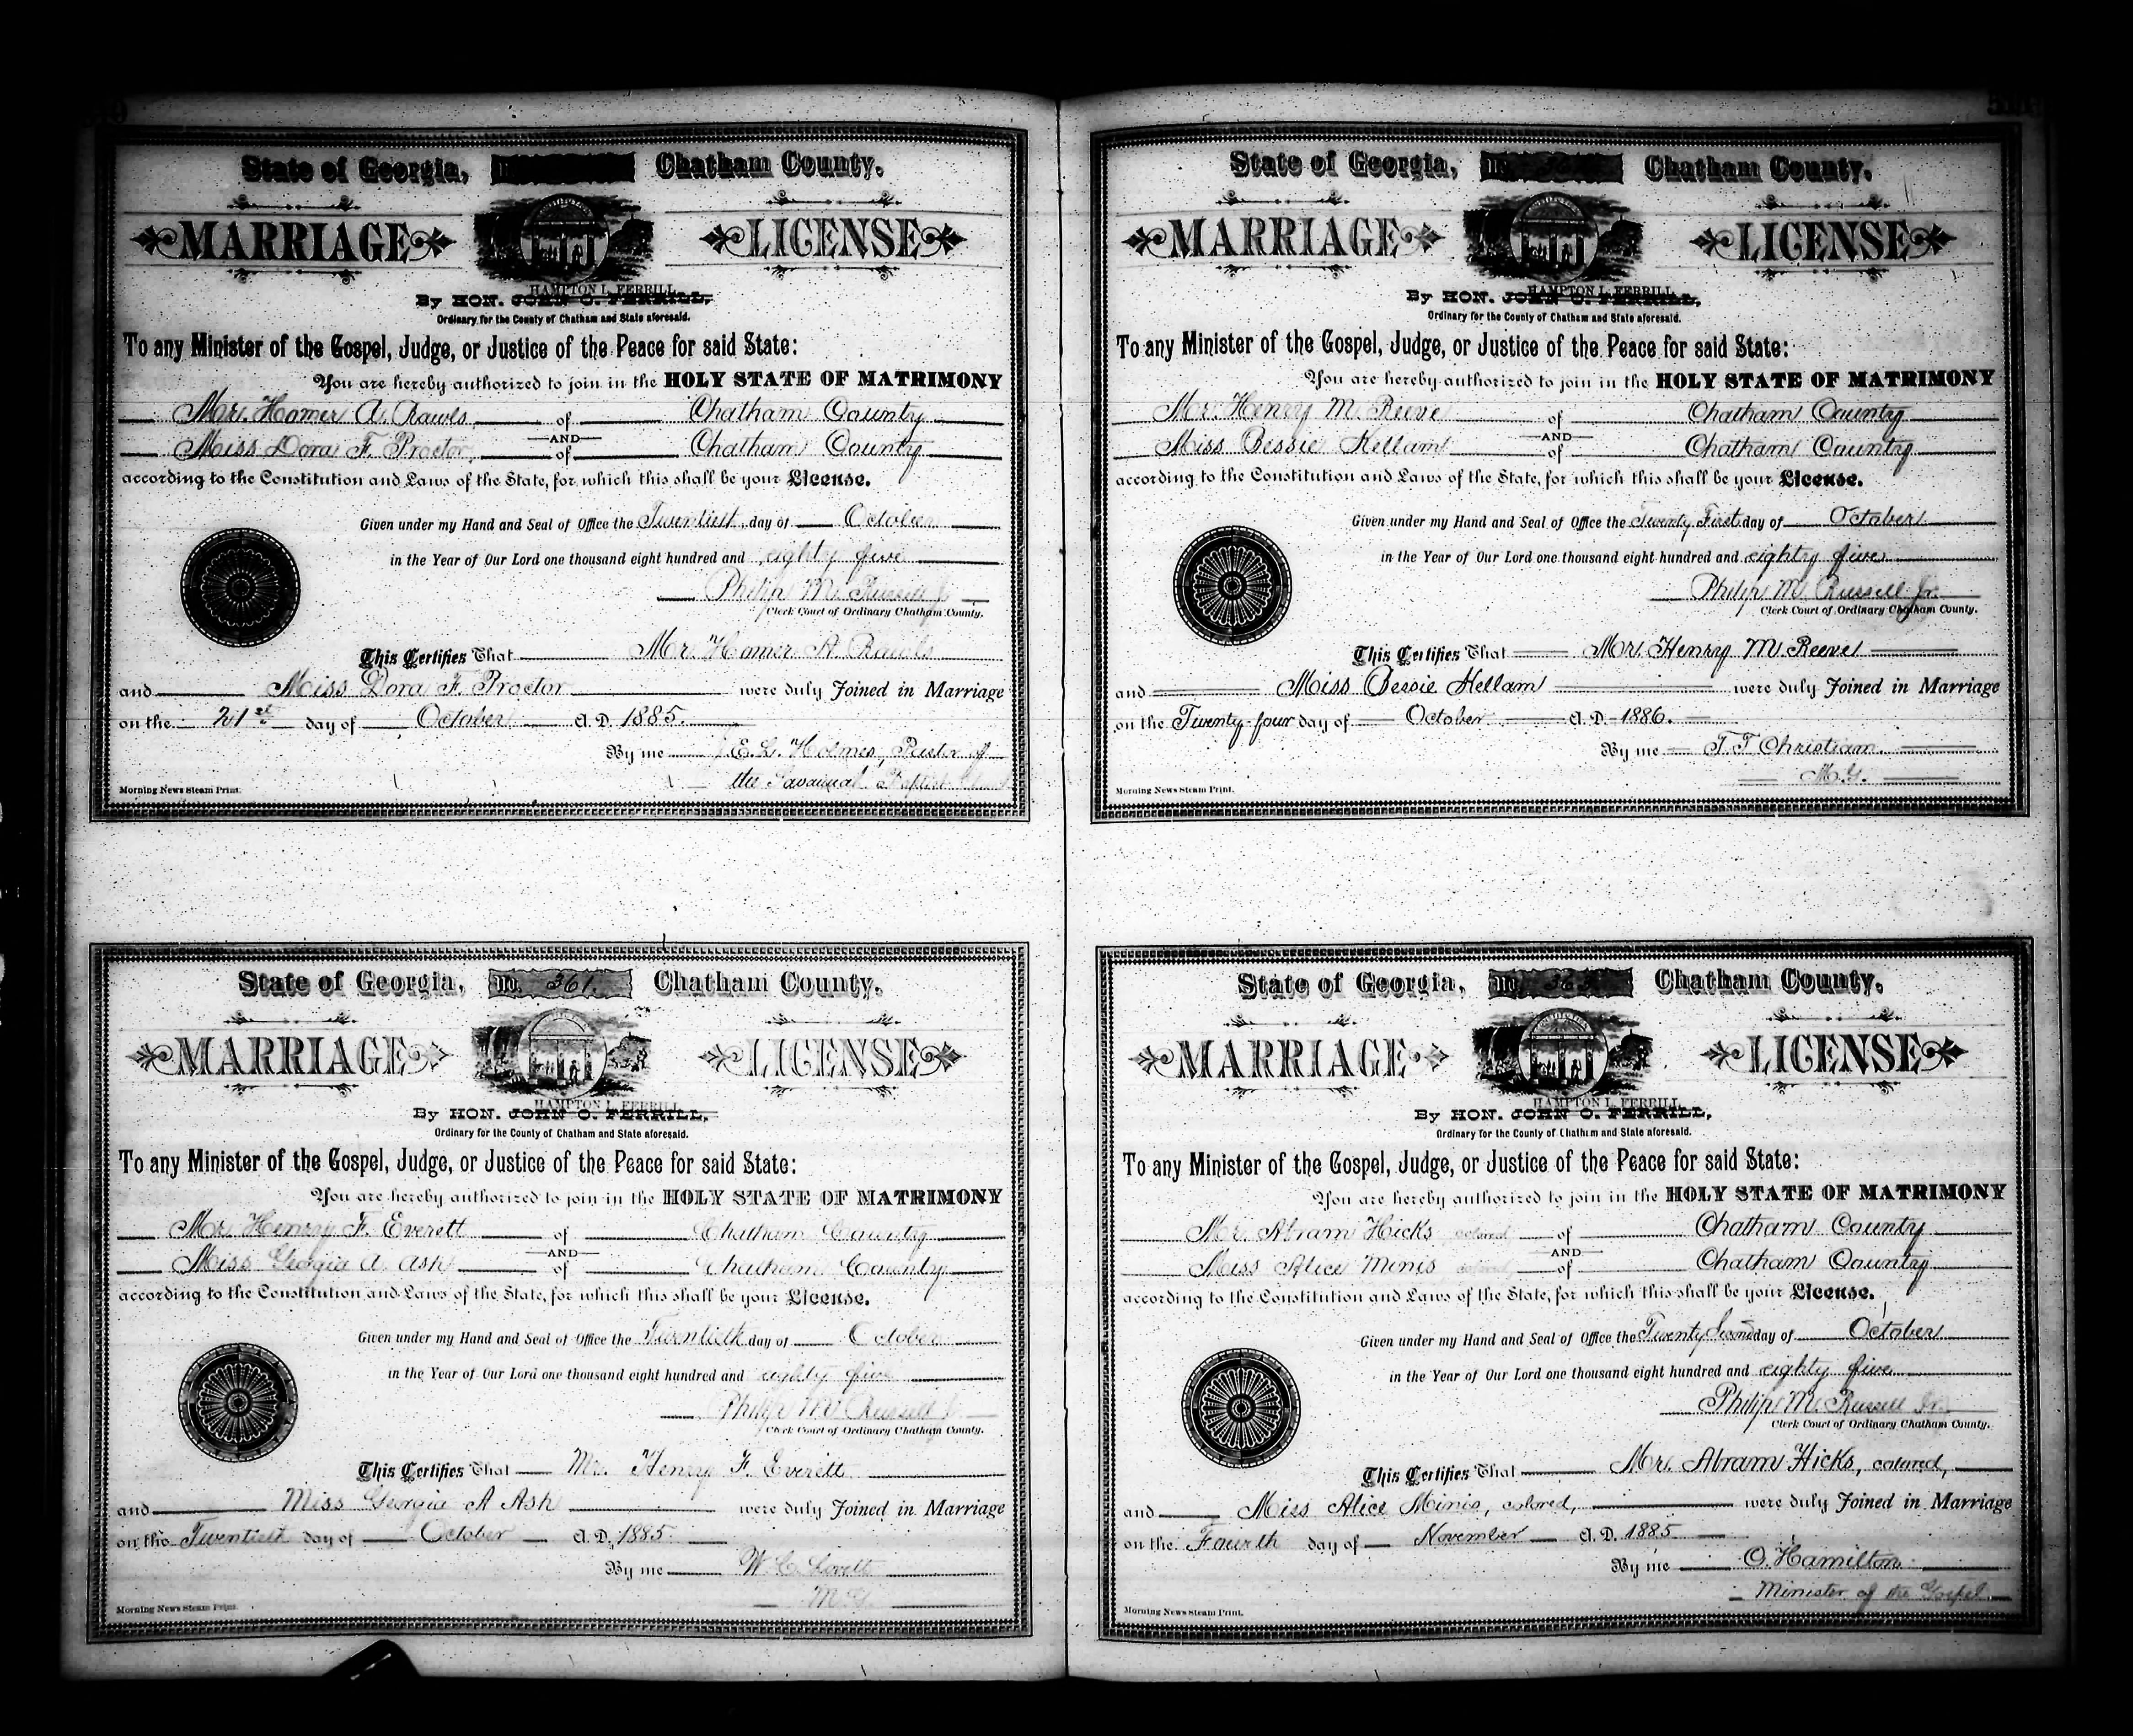 State of Georgia, Chatham County.
MARRIAGE LICENSE
HAMPTON L. FERRILL
By HON. JOHN O. FERRILL,
Ordinary for the County of Chatham and State aforesaid.
To any Minister of the Gospel, Judge, or Justice of the Peace for said State:
You are hereby authorized to join in the HOLY STATE OF MATRIMONY
Mr. Homer A. Rawls of Chatham County
AND
Miss Dora F. Proctor, of Chatham County
according to the Constitution and Laws of the State, for which this shall be your License.
Given under my Hand and Seal of Office the Twentieth day of October
in the Year of Our Lord one thousand eight hundred and eighty five
Philip M. Russell Jr.
Clerk Court of Ordinary Chatham County.
This Certifies That Mr. Homer A. Rawls
and Miss Dora F. Proctor were duly Joined in Marriage
on the 21st day of October A. D. 1885.
By me E. G. Holmes, Pastor of
the Savannah Baptist Church
Morning News Steam Print.
State of Georgia, No. 361. Chatham County.
MARRIAGE LICENSE
HAMPTON L. FERRILL
By HON. JOHN O. FERRILL,
Ordinary for the County of Chatham and State aforesaid.
To any Minister of the Gospel, Judge, or Justice of the Peace for said State:
You are hereby authorized to join in the HOLY STATE OF MATRIMONY
Mr. Henry F. Everett of Chatham County
AND
Miss Georgia A. Ash of Chatham County
according to the Constitution and Laws of the State, for which this shall be your License.
Given under my Hand and Seal of Office the Twentieth day of October
in the Year of Our Lord one thousand eight hundred and eighty five
Philip M. Russell Jr.
Clerk Court of Ordinary Chatham County.
This Certifies That Mr. Henry F. Everett
and Miss Georgia A Ash were duly Joined in Marriage
on the Twentieth day of October A. D. 1885.
By me W. C. Lovett
M. G.
Morning News Steam Print.
State of Georgia, No. Chatham County.
MARRIAGE LICENSE
HAMPTON L. FERRILL
By HON. JOHN O. FERRILL,
Ordinary for the County of Chatham and State aforesaid.
To any Minister of the Gospel, Judge, or Justice of the Peace for said State:
You are hereby authorized to join in the HOLY STATE OF MATRIMONY
Mr. Henry M. Reeve of Chatham County
AND
Miss Bessie Hellam of Chatham County
according to the Constitution and Laws of the State, for which this shall be your License.
Given under my Hand and Seal of Office the Twenty First day of October
in the Year of Our Lord one thousand eight hundred and eighty five
Philip M. Russell Jr.
Clerk Court of Ordinary Chatham County.
This Certifies That Mr. Henry M. Reeve
and Miss Bessie Hellam were duly Joined in Marriage
on the Twenty-four day of October A. D. 1886.
By me T. T. Christian
M. G.
Morning News Steam Print.
State of Georgia, No. Chatham County.
MARRIAGE LICENSE
HAMPTON L. FERRILL
By HON. JOHN O. FERRILL,
Ordinary for the County of Chatham and State aforesaid.
To any Minister of the Gospel, Judge, or Justice of the Peace for said State:
You are hereby authorized to join in the HOLY STATE OF MATRIMONY
Mr. Abram Hicks colored of Chatham County
AND
Miss Alice Minis colored, of Chatham County
according to the Constitution and Laws of the State, for which this shall be your License.
Given under my Hand and Seal of Office the Twenty Second day of October
in the Year of Our Lord one thousand eight hundred and eighty five
Philip M. Russell Jr.
Clerk Court of Ordinary Chatham County.
This Certifies That Mr. Abram Hicks, colored,
and Miss Alice Minis, colored, were duly Joined in Marriage
on the Fourth day of November A. D. 1885
By me O. Hamilton
Minister of the Gospel
Morning News Steam Print.